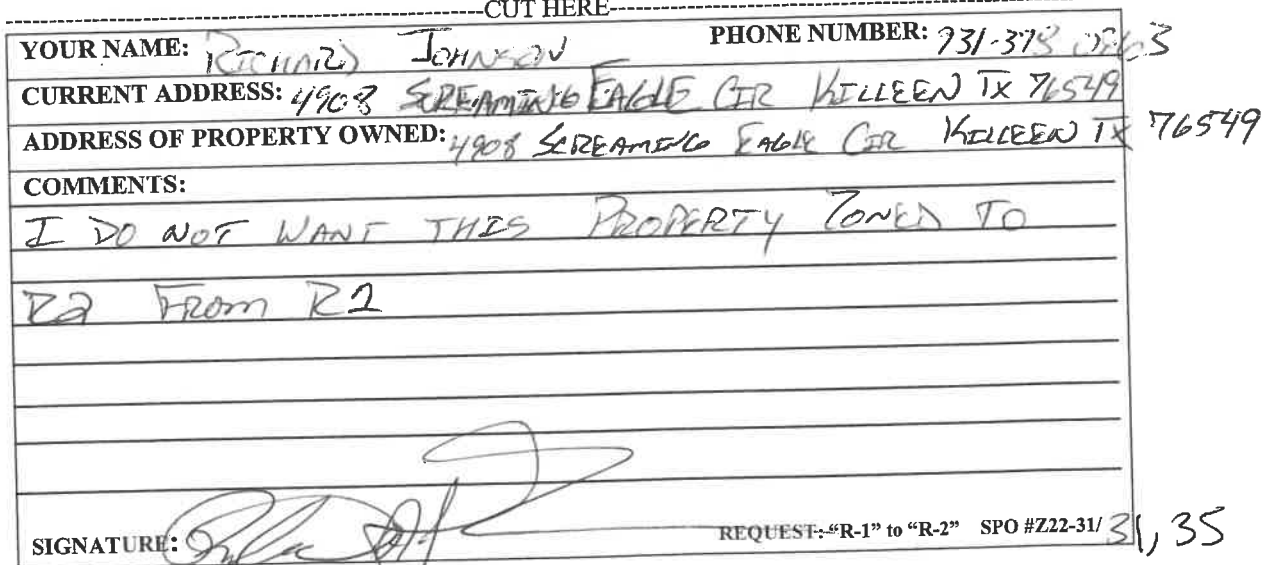 CUT HERE
YOUR NAME: RICHARD JOHNSON PHONE NUMBER: 931-378
CURRENT ADDRESS: 4908 SCREAMING EAGLE CIR KILLEEN TX 76549
ADDRESS OF PROPERTY OWNED: 4908 SCREAMING EAGLE CIR KILLEEN TX 76549
COMMENTS:
I DO NOT WANT THIS PROPERTY ZONED TO
R2 FROM R1
SIGNATURE: REQUEST: "R-1" to "R-2" SPO #Z22-31/ 31, 35